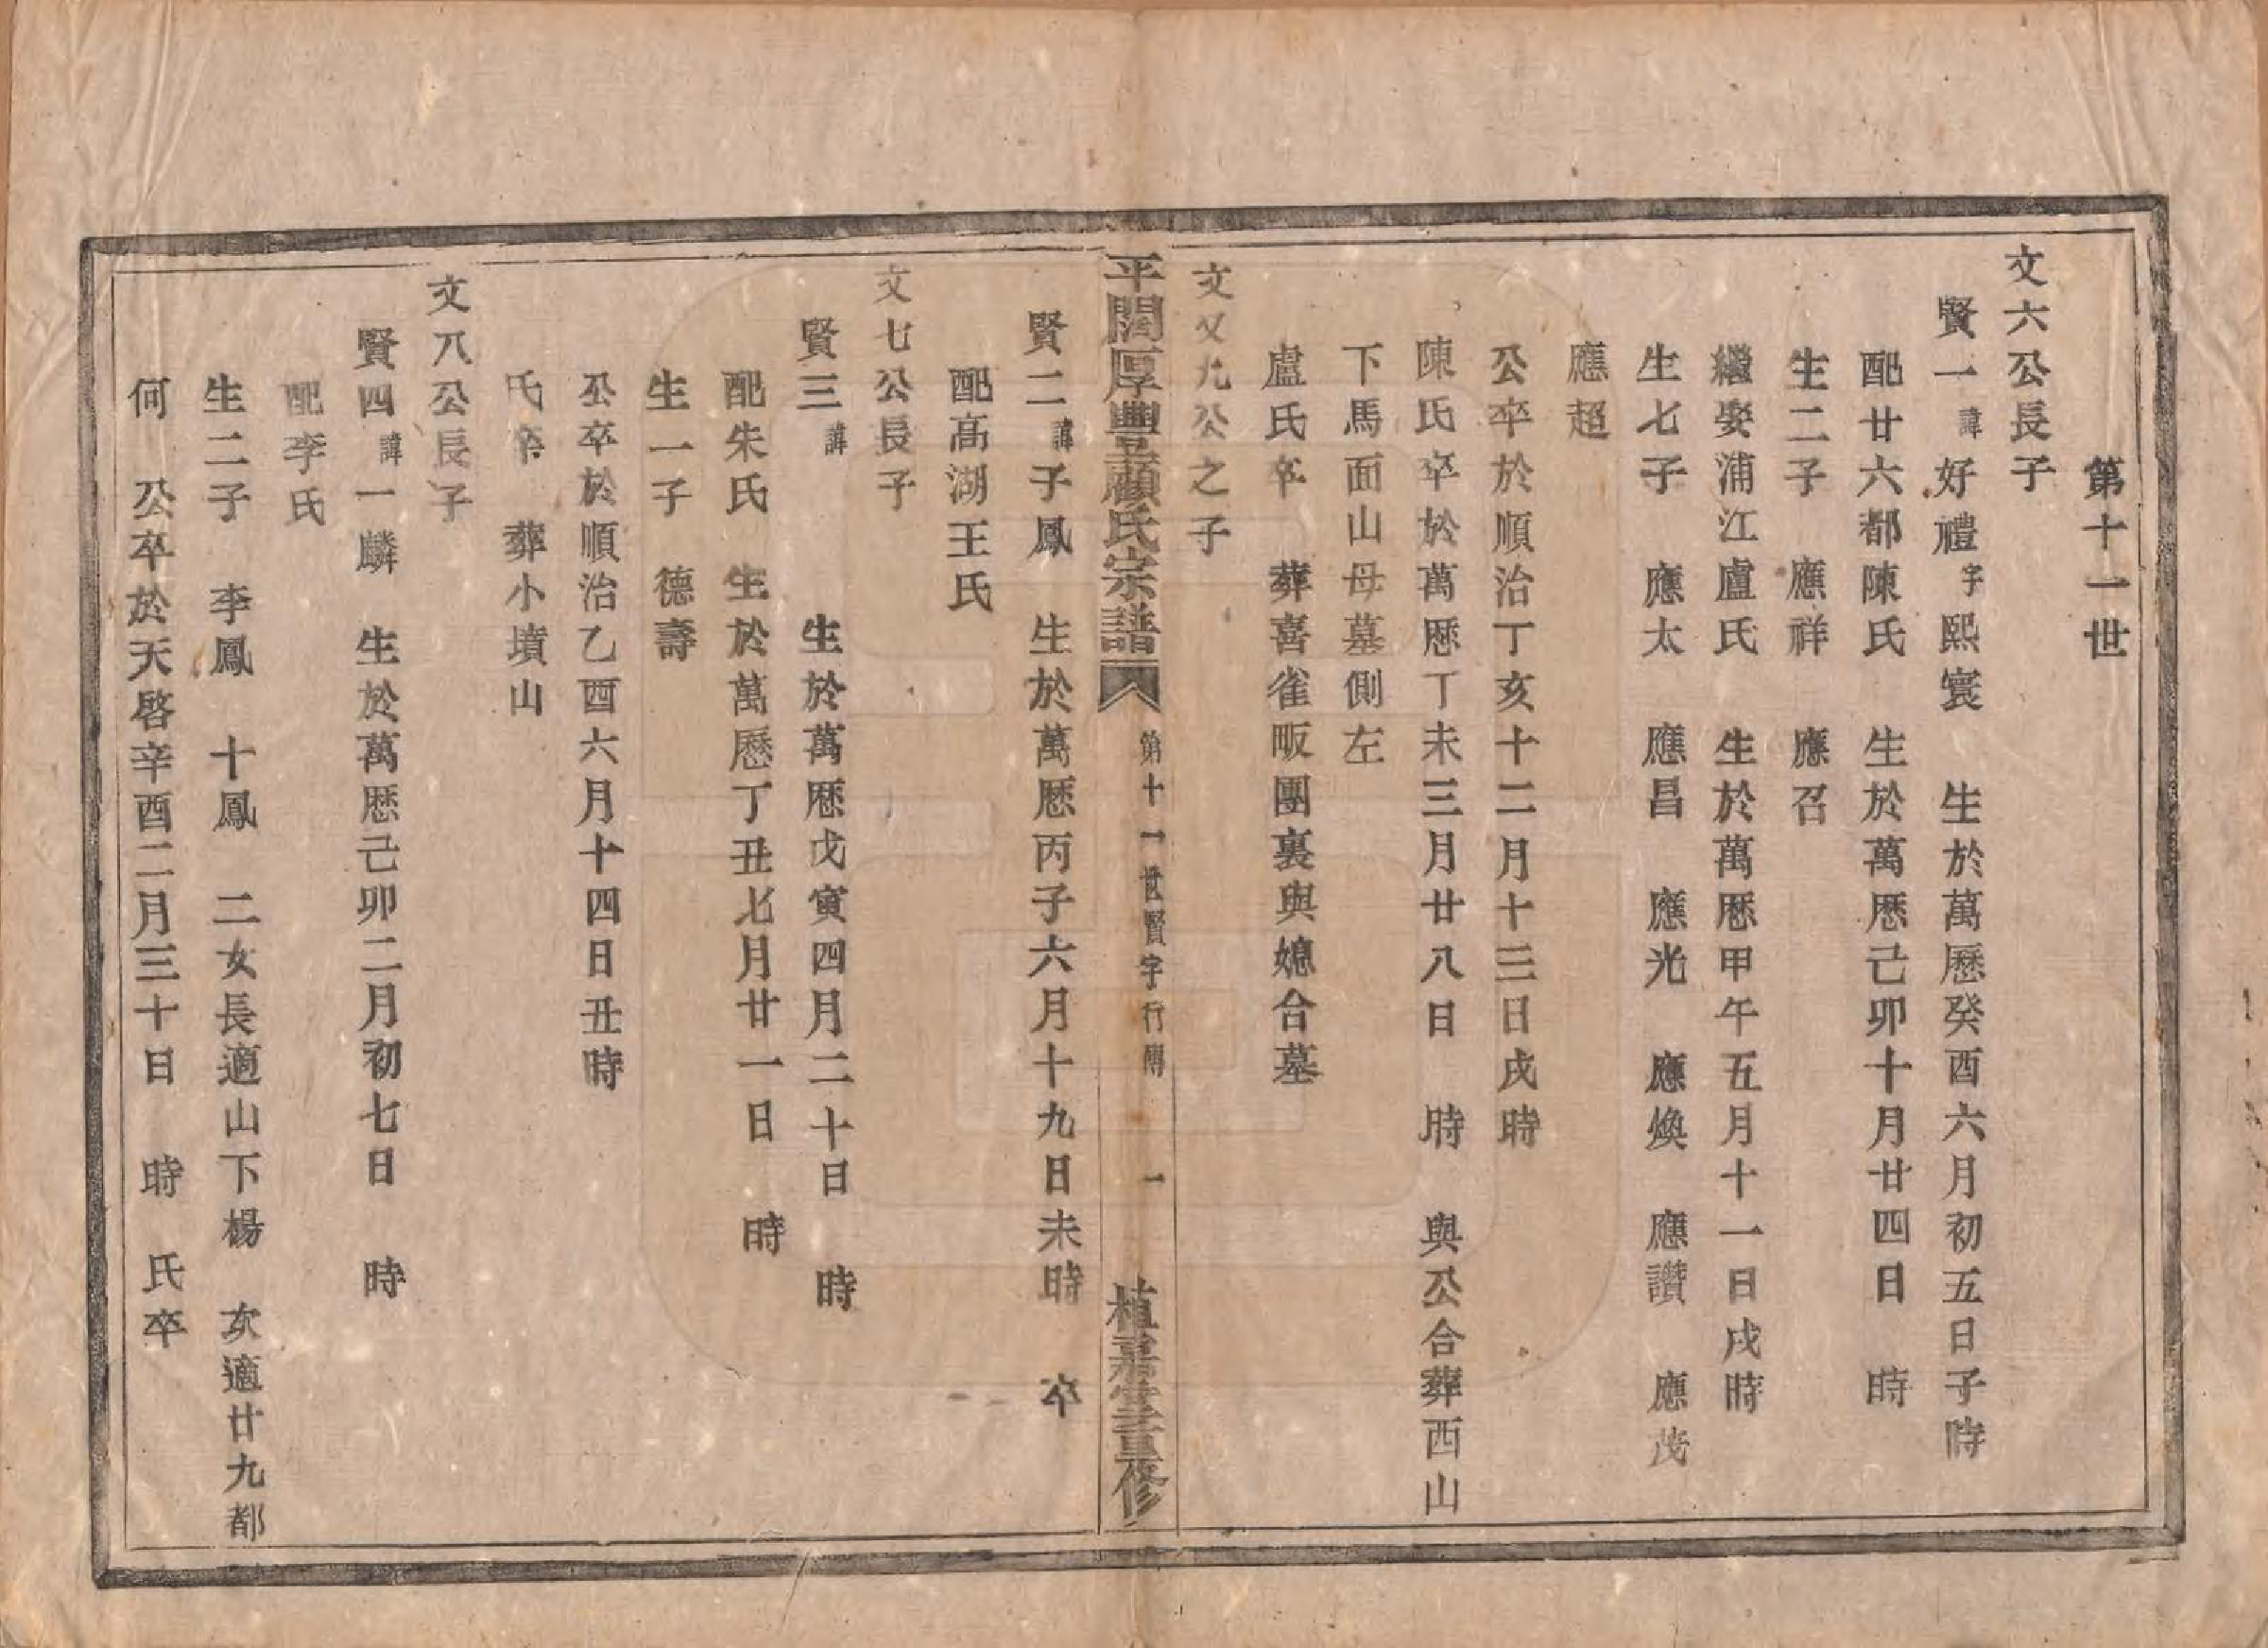 第十一世
文六公長子
賢一諱好禮字熙寰 生於萬歷癸酉六月初五日子時
配廿六都陳氏 生於萬歷己卯十月廿四日 時
生二子 應祥 應召
繼娶浦江盧氏 生於萬歷甲午五月十一日戌時
生七子 應太 應昌 應光 應煥 應讚 應茂
應超
公卒於順治丁亥十二月十三日戌時
陳氏卒於萬歷丁未三月廿八日 時 與公合葬西山
下馬面山母墓側左
盧氏卒 葬喜雀畈團裏與媳合墓
文又九公之子
平闊厚豐顧氏宗譜 第十一世賢字行傳 一 植嘉堂重修
賢二諱子鳳 生於萬歷丙子六月十九日未時 卒
配高湖王氏
文七公長子
賢三諱 生於萬歷戊寅四月二十日 時
配朱氏 生於萬歷丁丑七月廿一日 時
生一子 德壽
公卒於順治乙酉六月十四日丑時
氏卒 葬小墳山
文八公長子
賢四諱一麟 生於萬歷己卯二月初七日 時
配李氏
生二子 李鳳 十鳳 二女長適山下楊 次適廿九都
何 公卒於天啓辛酉二月三十日 時 氏卒